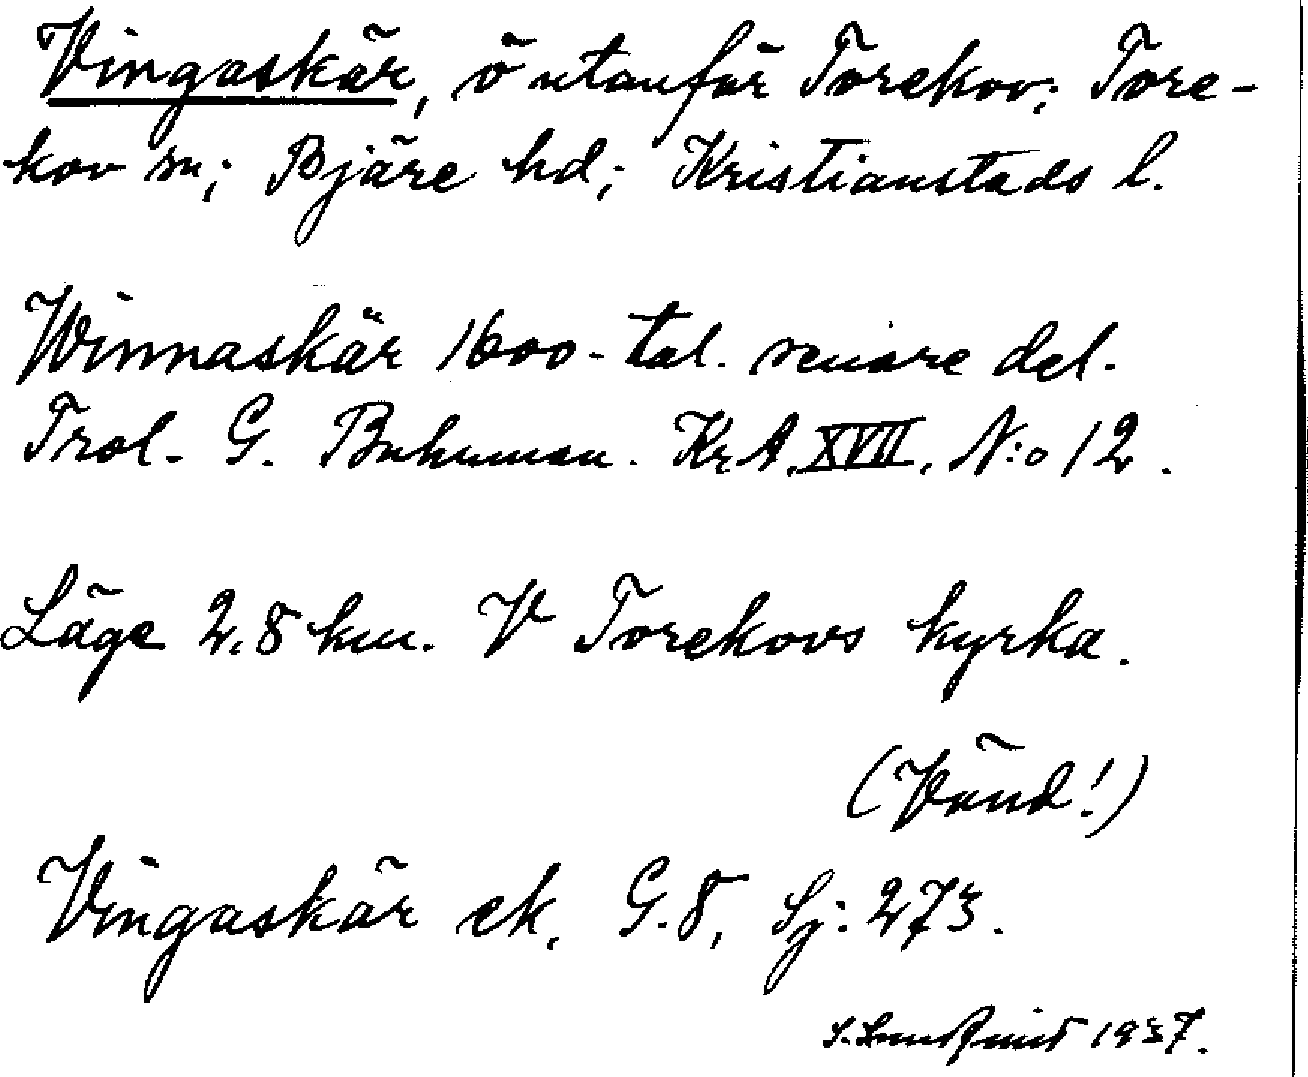 Vingaskär, ö utanför Torekov; Tore-
kov sn; Bjäre hd; Kristianstads l.
Winnaskär 1600-tal. senare del.
Trol. G. Buhrman. KrA. XVII, N:o 12.
Läge 2,8 km. V Torekovs kyrka.
(Vänd!)
Vingaskär ek. G.8, Sj: 273.
S. Lundquist 1937.